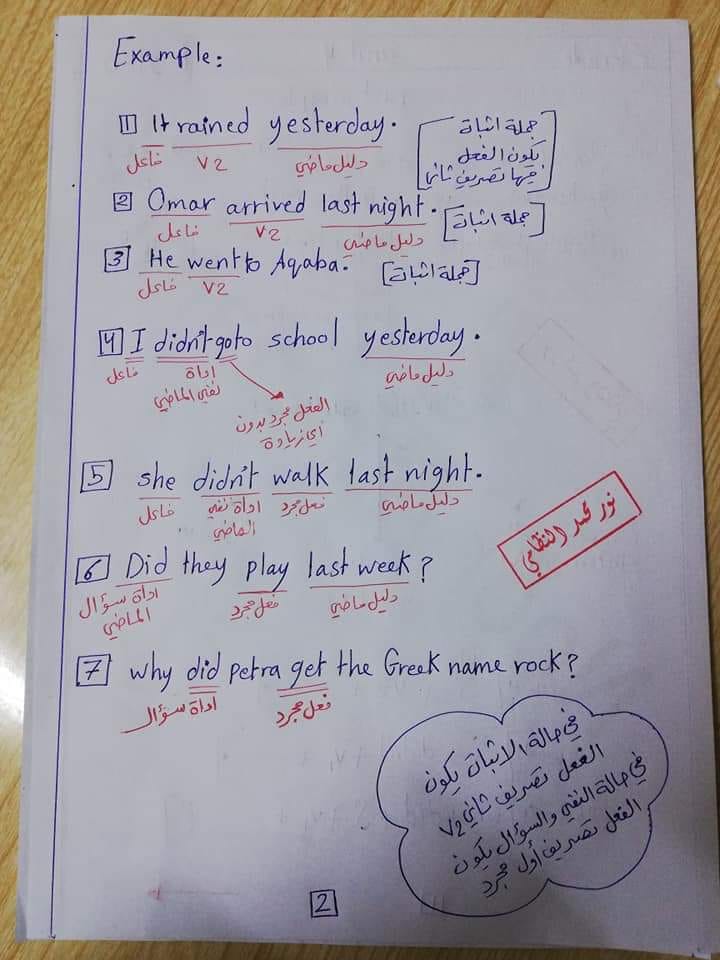 Example:
1 It rained yesterday.
فاعل V2 دليل ماضي
[جملة اثبات
يكون الفعل
فيها تصريف ثاني]
2 Omar arrived last night. [جملة اثبات]
فاعل V2 دليل ماضي
3 He went to Aqaba. [جملة اثبات]
فاعل V2
4 I didn't go to school yesterday.
فاعل اداة دليل ماضي
نفي الماضي
الفعل مجرد بدون
أي زيادة
5 she didn't walk last night.
فاعل اداة نفي فعل مجرد دليل ماضي
الماضي
نور محمد
6 Did they play last week?
اداة سؤال فعل مجرد دليل ماضي
الماضي
7 why did petra get the Greek name rock?
اداة سؤال فعل مجرد
في حالة الاثبات يكون
الفعل تصريف ثاني V2
في حالة النفي والسؤال يكون
الفعل تصريف أول مجرد
2